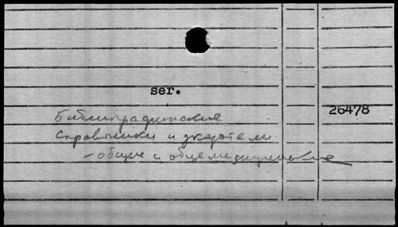 ser.
26478
Библиографические
Справочники и указатели
- общие и общемедицинские